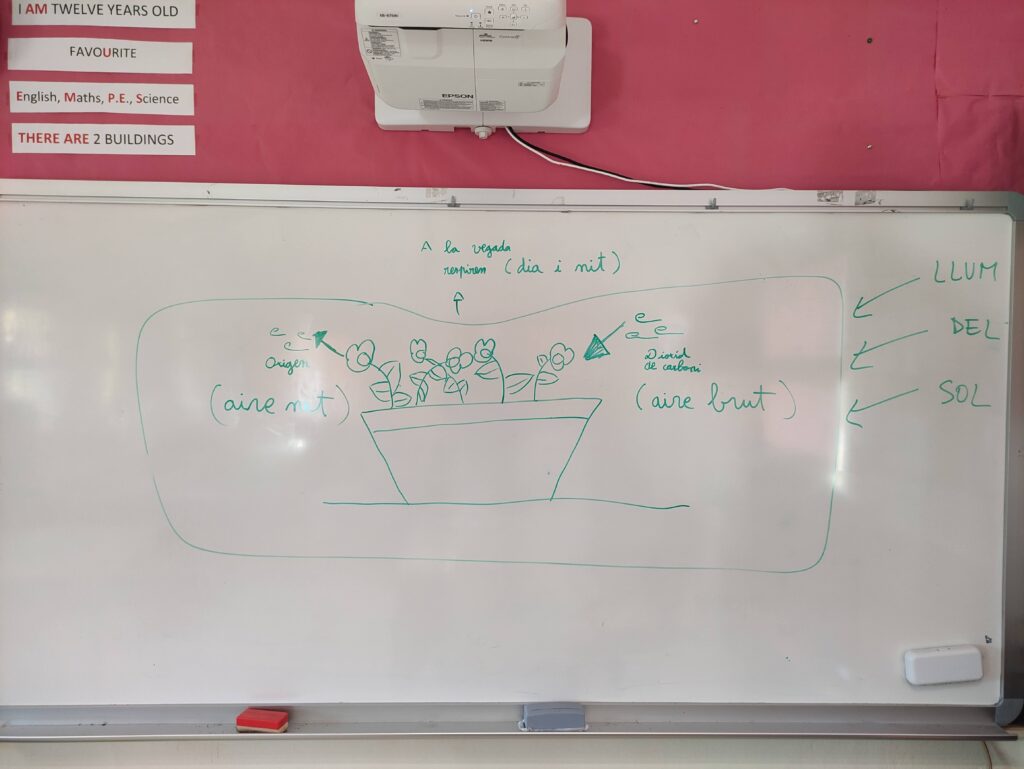 I AM TWELVE YEARS OLD
FAVOURITE
English, Maths, P.E., Science
THERE ARE 2 BUILDINGS
EPSON
A la vegada
respiren (dia i nit)
LLUM
DEL
SOL
Oxigen
(aire net)
Dioxid
de carboni
(aire brut)